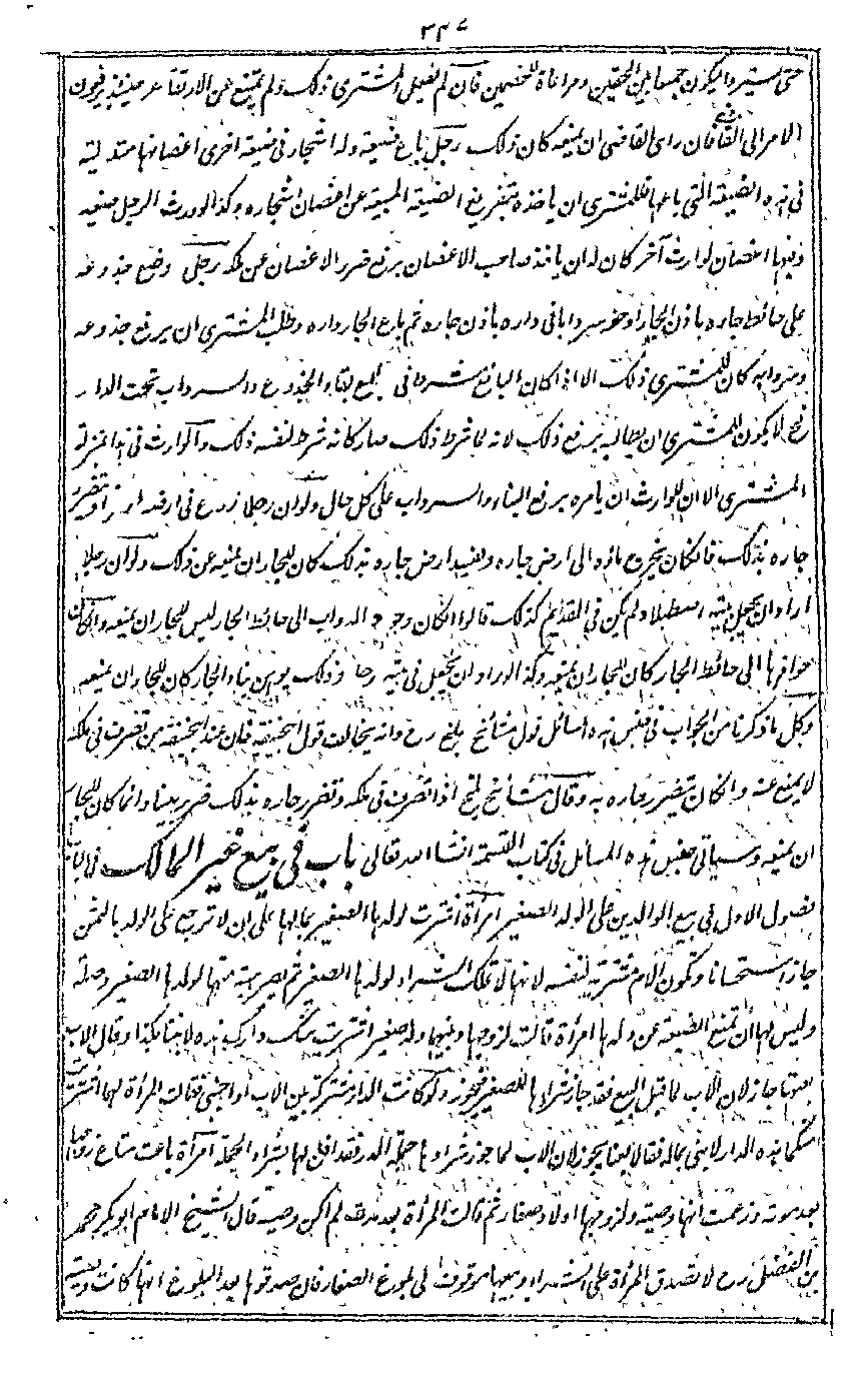 ٣٤٧
حتى يستروا ليكون جمعا بين الحقين ومراعاة للخصمين فان لم يفعل المشترى ذلك ولم يمتنع عن الارتقاء حينئذ يرفعون
الامر الى القاضى فان راى القاضى ان يمنعه كان ذلك رجل باع ضيعة وله اشجار فى ضيعة اخرى اغصانها متدلية
فى هذه الضيعة التى باعها فللمشترى ان ياخذه بتفريغ الضيعة المبيعة عن اغصان اشجاره وكذا لو ورث الرجل ضيعة
وفيها اغصان لوارث آخر كان له ان ياخذ صاحب الاغصان برفع ضرر الاغصان عن ملكه رجل وضع جذوعه
على حائط جاره باذن الجار او حفر سردابا فى داره باذن جاره ثم باع الجار داره وطلب المشترى ان يرفع جذوعه
وسردابه كان للمشترى ذلك الا اذا كان البائع شرط فى البيع بقاء الجذوع والسرداب تحت الدار
فح لا يكون للمشترى ان يطالبه برفع ذلك لانه لما شرط ذلك صار كانه شرط لنفسه ذلك والوارث فى هذا بمنزلة
المشترى الا ان للوارث ان يامره برفع البناء والسرداب على كل حال ولو ان رجلا زرع فى ارضه ارزا وتضرر
جاره بذلك فان كان يخرج ماؤه الى ارض جاره ويفسد ارض جاره بذلك كان للجار ان يمنعه عن ذلك ولو ان رجلا
اراد ان يجعل بيته اصطبلا ولم يكن فى القديم كذلك قالوا ان كان وجوه الدواب الى حائط الجار ليس للجار ان يمنعه وان كان
حوافرها الى حائط الجار كان للجار ان يمنعه وكذا لو اراد ان يجعل فى بيته رحا وذلك يوهن بناء الجار كان للجار ان يمنعه
وكل ما ذكرنا من الجواب فى جنس هذه المسائل قول مشائخ بلخ رح وانه يخالف قول ابيحنيفة فان عند ابيحنيفة من تصرف فى ملكه
لا يمنع عنه وان كان يتضرر جاره به وقال مشائخ بلخ اذا تصرف فى ملكه وتضرر جاره بذلك ضررا بينا وانما كان للجار
ان يمنعه وسياتى جنس هذه المسائل فى كتاب القسمة انشاء الله تعالى باب فى بيع غير المالك فى الباب
فصول الاول فى بيع الوالدين على الولد الصغير امرأة اشترت لولدها الصغير بمالها على ان لا ترجع على الولد بالثمن
جاز استحسانا وتكون الام مشترية لنفسه لانها لا تملك الشراء لولدها الصغير ثم يصير هبة منها لولدها الصغير وصلة
وليس لها ان تمنع الضيعة عن ولدها امرأة قالت لزوجها وبينهما ولد صغير اشتريت منك دارك هذه لابننا بكذا وقال الاب
بعتها جاز لان الاب لما قبل البيع فقد جاز شراؤها للصغير فيجوز ولو كانت الدار مشتركة بين الاب او اجنبى فقالت المرأة لهما اشتريت
منكما هذه الدار لابنى بماله فقالا بعنا يجوز لان الاب لما جوز شراءها جملة الدار فقد اذن لها بشراء الجملة امرأة باعت متاع زوجها
بعد موته وزعمت انها وصيته ولزوجها اولاد صغار ثم قالت المرأة بعد مدة لم اكن وصية قال الشيخ الامام ابو بكر محمد
بن الفضل رح لا تصدق المرأة على الشراء وبيعها موقوف الى بلوغ الصغار فان صدقوها بعد البلوغ انها كانت وصية